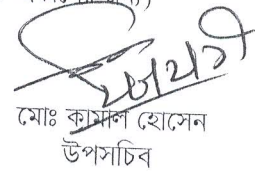 মোঃ কামাল হোসেন
উপসচিব